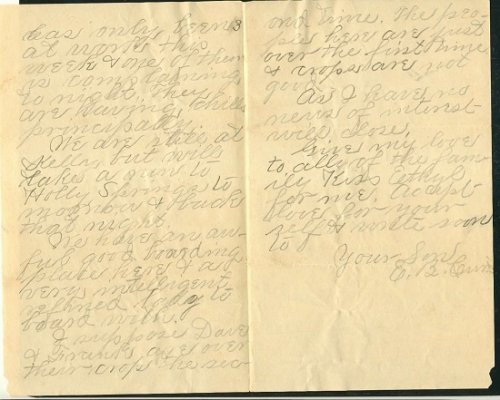 has only been 3
at work this
week & one of them
is complaining
to night, they
are having chills
principally.
We are still at
Kelly, but will
take a run to
Holly Springs to
morrow & back
that night.
We have an aw-
ful good boarding
place here & a
very intelligent
refined lady to
board with.
I suppose Dave
& Frank are over
their crops the sec-
ond time. The peo-
ple here are just
over the first time
& crops are not
good.
As I have no
news of interest
will close.
Give my love
to all of the fam-
ily Kiss Ethyl
for me. Accept
love for your
self & write soon
to
Your Son
E. B.